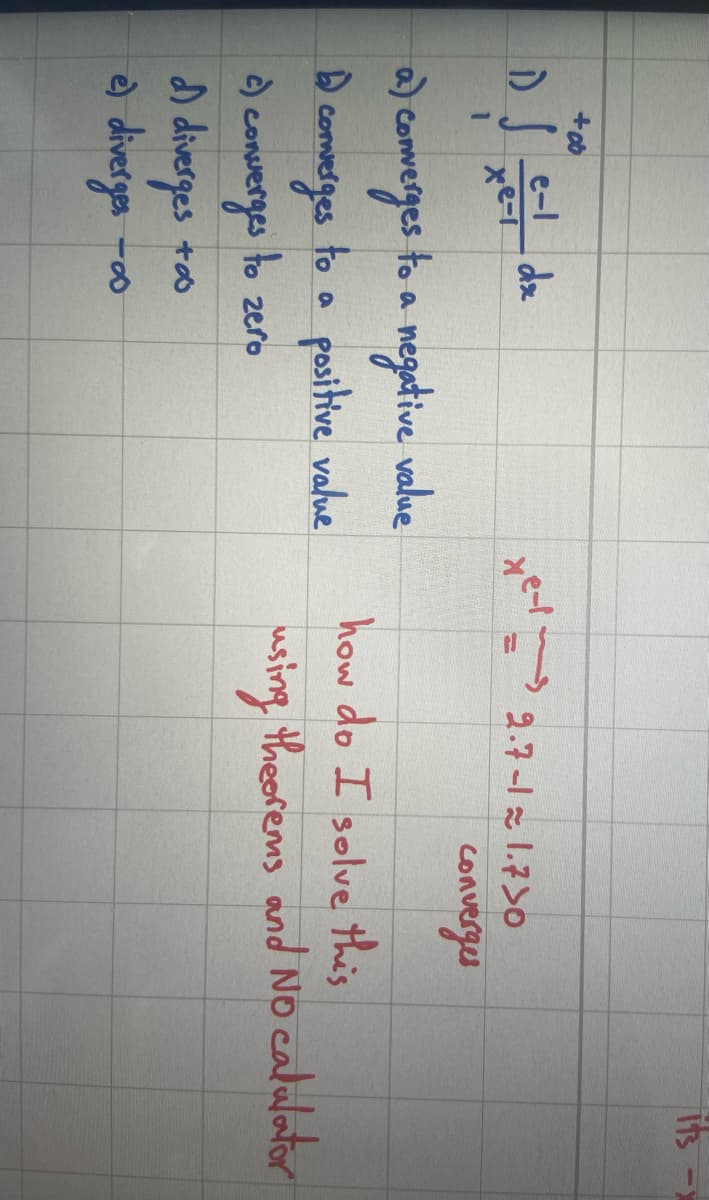 its -
+∞
1) ∫ e-1 / x^e-1 dx
1
x^e-1 → 2.7-1≈1.7>0
=
converges
a) converges to a negative value
b) converges to a positive value
c) converges to zero
d) diverges +∞
e) diverges -∞
how do I solve this
using theorems and NO calulator